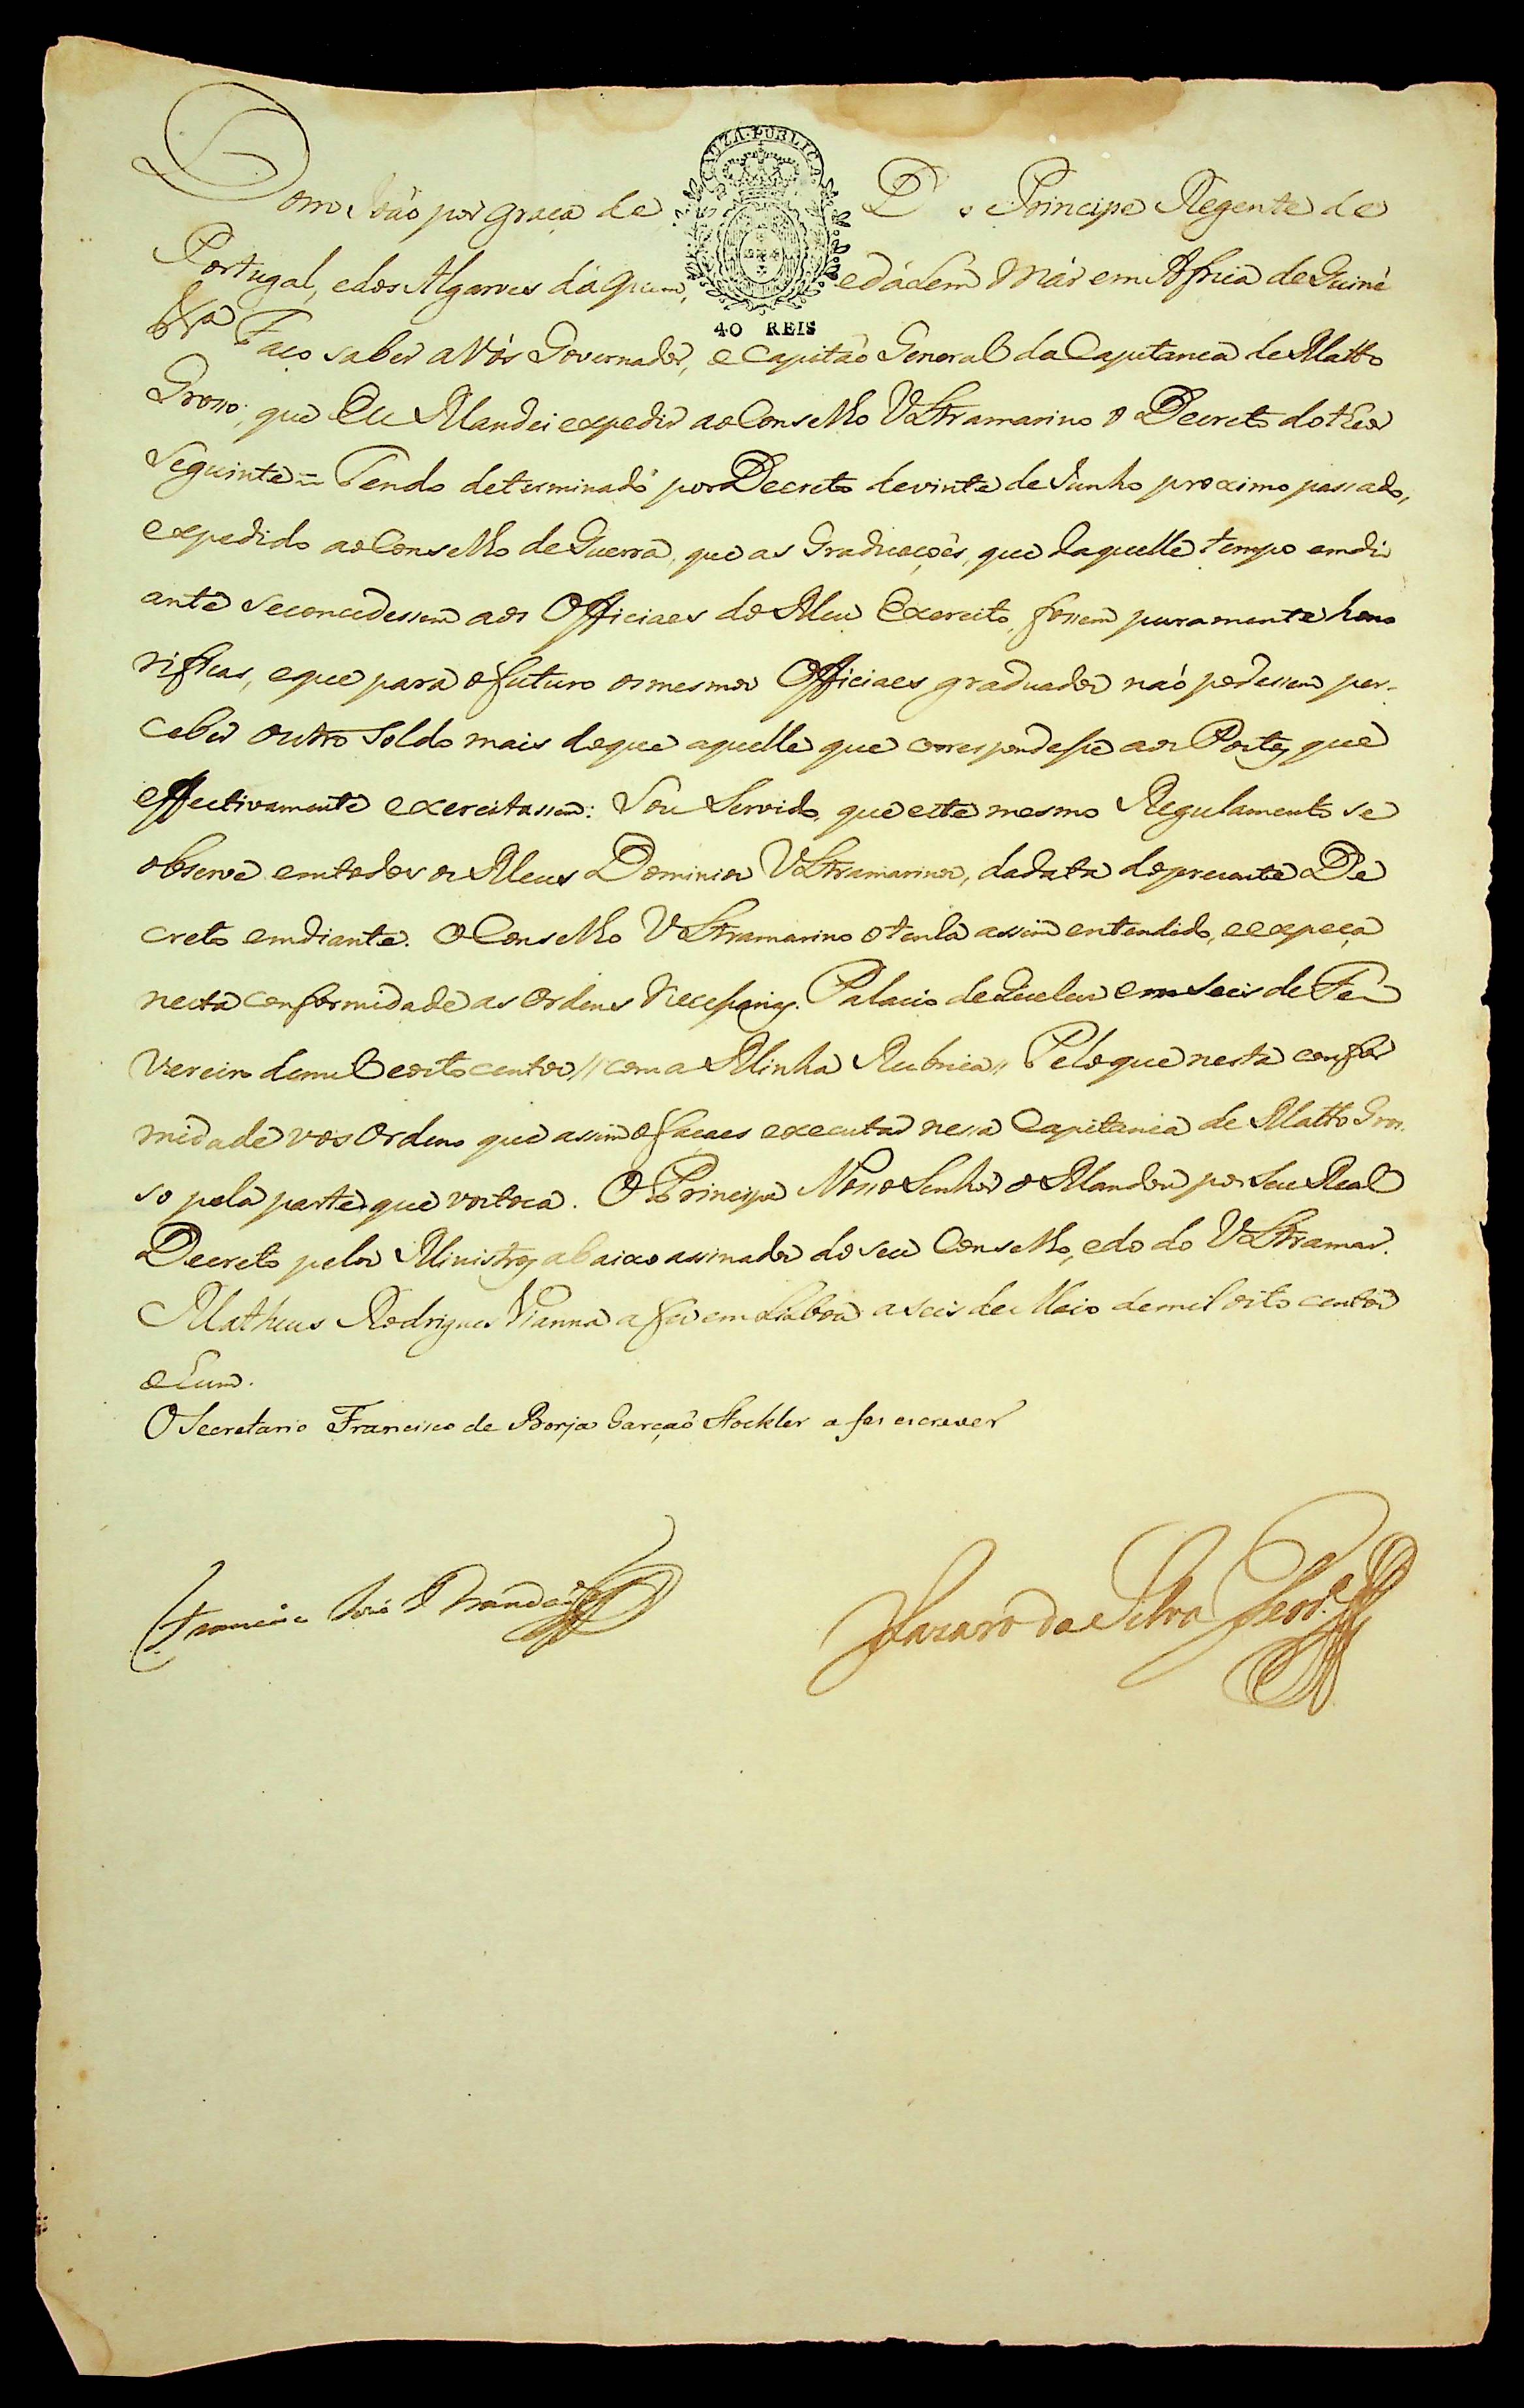 CAUZA PUBLICA
Dom João por graça de D.s Principe Regente de
Portugal, e dos Algarves dáquem, e dálem Már em Africa de Guiné
&.ª Faço saber a Vós Governador, e Capitaõ General da Capitanea de Matto
Grosso; que Eu Mandei expedir ao Conselho Ultramarino o Decreto do theor
Seguinte = Tendo determinado por Decreto de vinte de Junho proximo passado,
expedido ao Conselho de Guerra, que as Graduaçoẽs, que daquelle tempo em di
ante se concedessem aos Officiaes do Meu Exercito, fossem puramente hono
rificas, e que para o futuro os mesmos Officiaes graduados naõ podessem per-
ceber outro Soldo mais do que aquelle que correspondesse aos Postos, que
effectivamente exercitassem: Sou Servido, que este mesmo Regulamento se
observe em todos os Meus Dominios Ultramarinos, da data do prezente De
creto em diante. O Conselho Ultramarino o tenha assim entendido, e expeça
nesta conformidade as Ordens Necessarias. Palacio de Queluz em seis de Fe
vereiro de mil e oito centos // com a Minha Rubrica // Pelo que nesta confor
midade vos Ordeno que assim o façaes executar nessa Capitania de Matto Gros-
so pela parte que vos toca. O Principe Nosso Senhor o Mandou por Seu Real
Decreto pelos Ministros abaixo assinados do seu Conselho, e do do Ultramar.
Matheus Rodrigues Vianna a fez em Lisboa a seis de Maio de mil oito centos
e hum.
O Secretario Francisco de Borja Garçaõ Stockler a fez escrever
Francisco José Brandaõ
Lazaro da Silva Ferr.ª
40 REIS